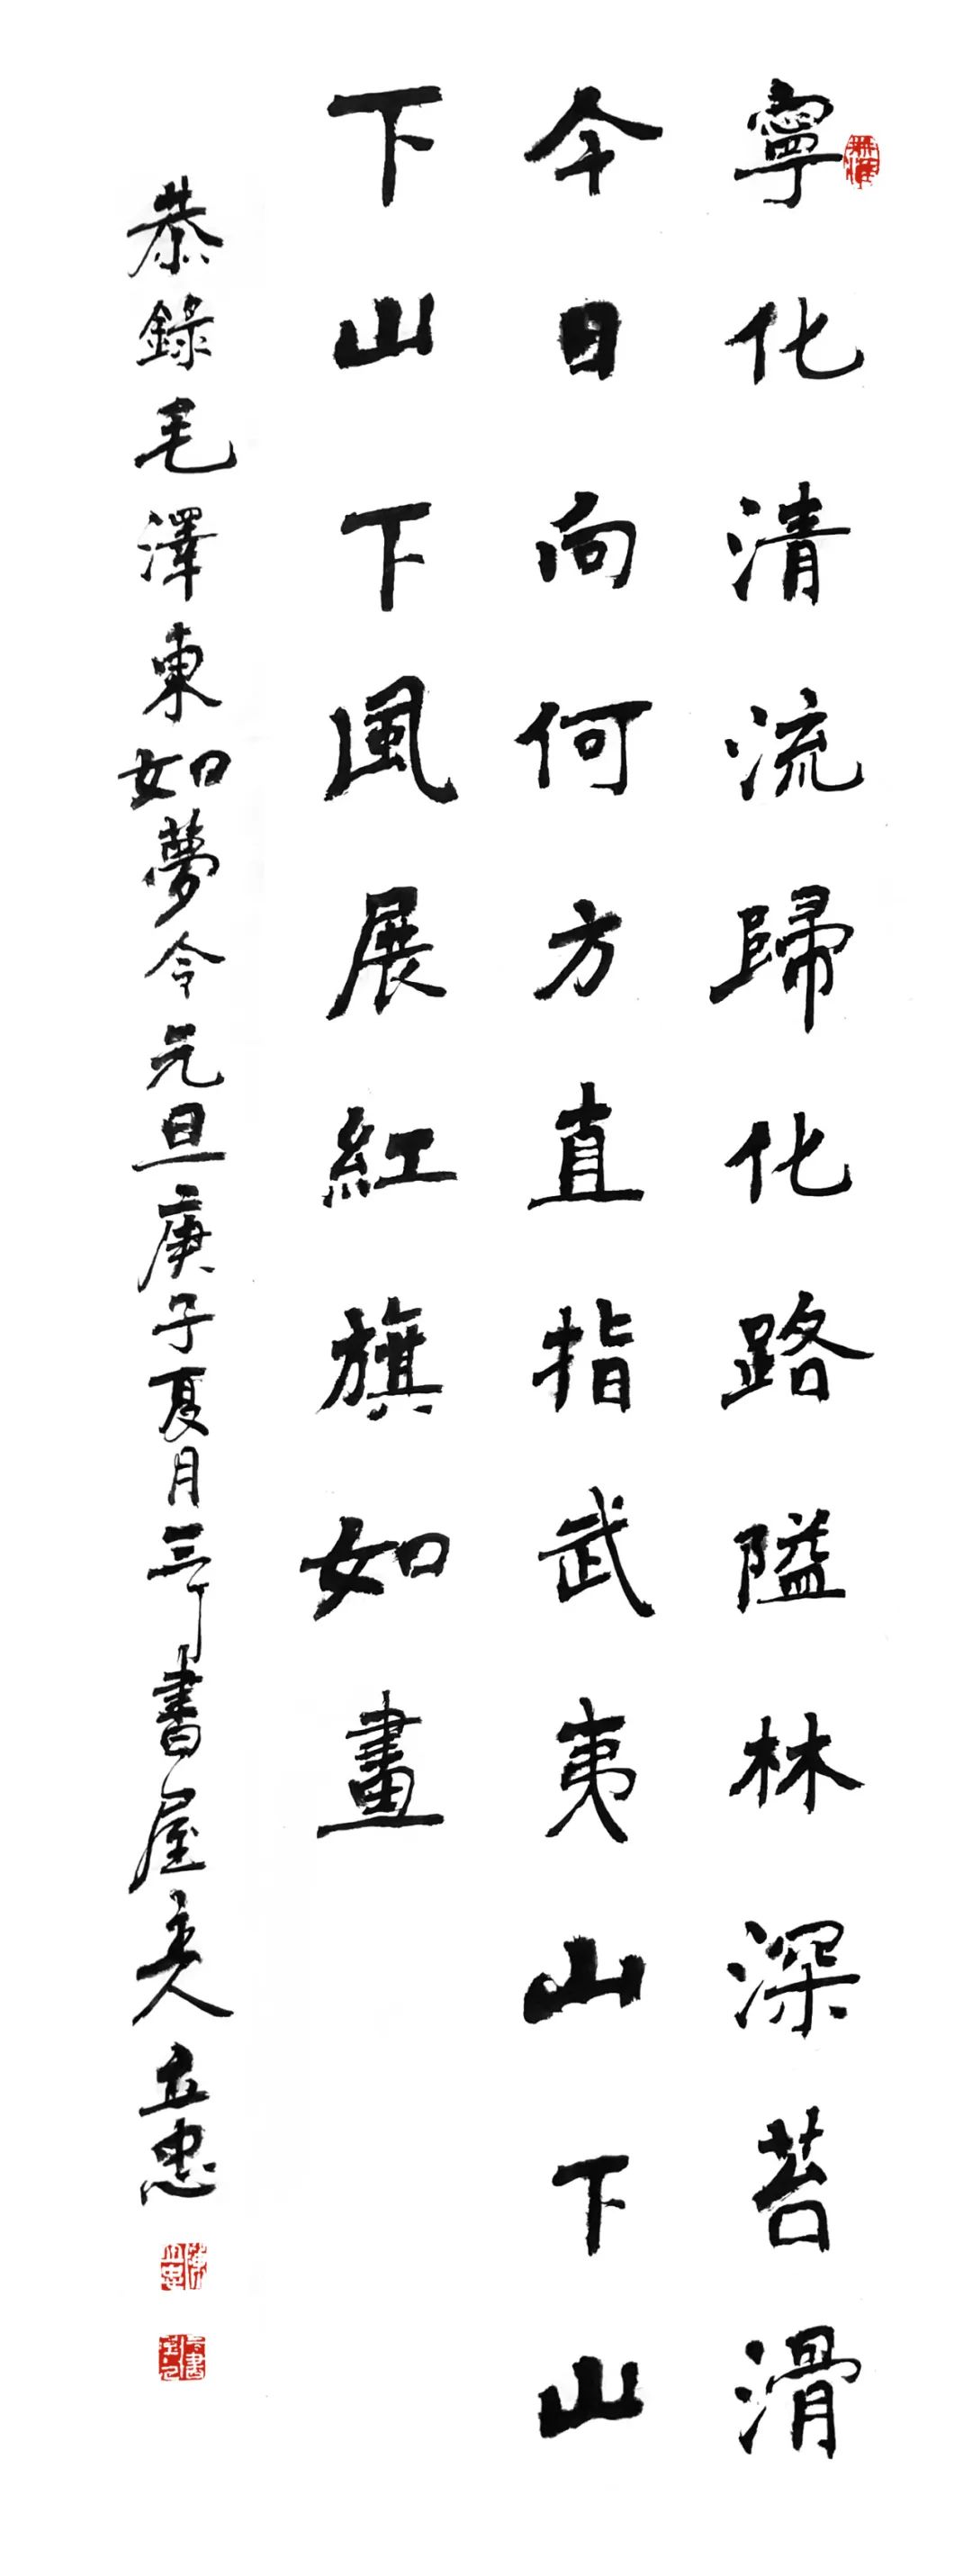 寧化清流歸化路隘林深苔滑
今日向何方直指武夷山下山
下山下風展紅旗如畫
恭錄毛澤東如夢令元旦庚子夏月三書屋主人立忠